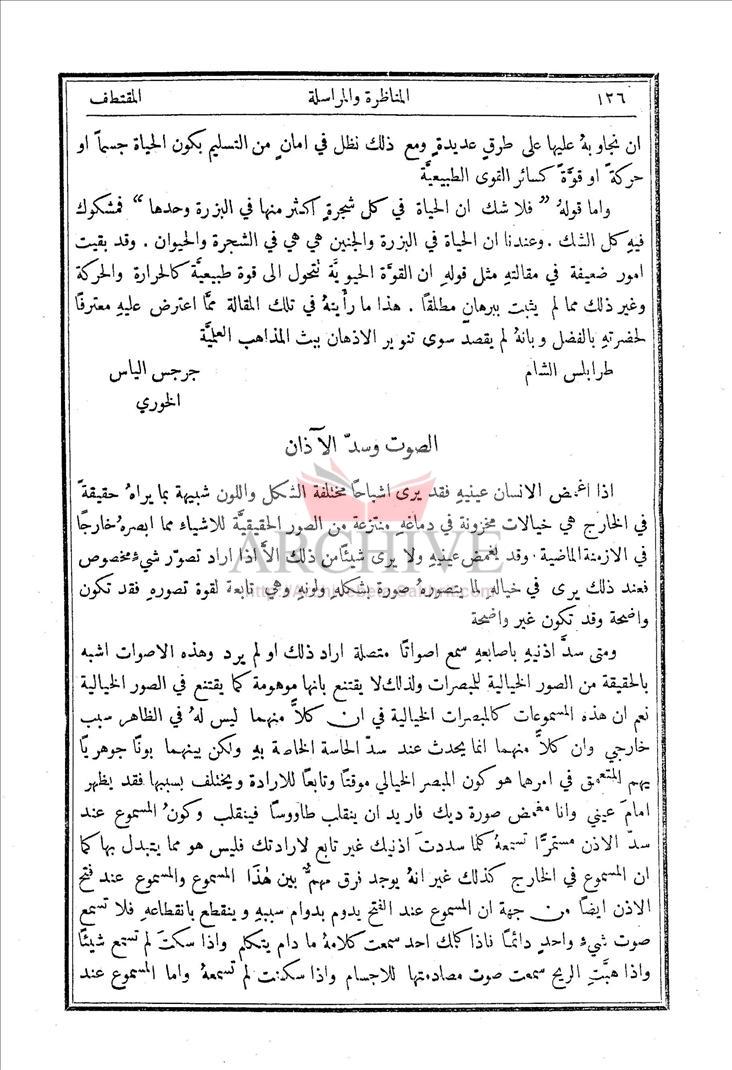 ١٢٦ المناظرة والمراسلة المقتطف
ان نجاوبهُ عليها على طرقٍ عديدةٍ ومع ذلك نظل في امانٍ من التسليم بكون الحياة جسماً او
حركةً او قوَّةً كسائر القوى الطبيعيَّة
واما قولهُ " فلا شك ان الحياة في كل شجرةٍ اكثر منها في البزرة وحدها " فمشكوك
فيهِ كل الشك . وعندنا ان الحياة في البزرة والجنين هي هي في الشجرة والحيوان . وقد بقيت
امور ضعيفة في مقالتهِ مثل قولهِ ان القوَّة الحيويَّة تتحول الى قوة طبيعيَّة كالحرارة والحركة
وغير ذلك مما لم يثبت ببرهانٍ مطلقًا . هذا ما رأيتهُ في تلك المقالة ممَّا اعترض عليهِ معترفًا
لحضرتهِ بالفضل وبانهُ لم يقصد سوى تنوير الاذهان ببث المذاهب العلميَّة
طرابلس الشام جرجس الياس
الخوري
الصوت وسدّ الآذان
اذا اغمض الانسان عينيهِ فقد يرى اشباحًا مختلفة الشكل واللون شبيهة بما يراهُ حقيقةً
في الخارج هي خيالات مخزونة في دماغهِ منتزعة من الصور الحقيقيَّة للاشياء مما ابصرهُ خارجًا
في الازمنة الماضية . وقد يغمض عينيهِ ولا يرى شيئًا من ذلك الاَّ اذا اراد تصوّر شيءٍ مخصوص
فعند ذلك يرى في خيالهِ لما يتصورهُ صورة بشكلهِ ولونهِ وهي تابعة لقوة تصورهِ فقد تكون
واضحة وقد تكون غير واضحة
ومتى سدَّ اذنيهِ باصابعهِ سمع اصواتًا متصلة اراد ذلك او لم يرد وهذه الاصوات اشبه
بالحقيقة من الصور الخيالية للمبصرات ولذلك لا يقتنع بانها موهومة كما يقتنع في الصور الخيالية
نعم ان هذه المسموعات كالمبصرات الخيالية في ان كلاًّ منهما ليس لهُ في الظاهر سبب
خارجي وان كلاًّ منهما انما يحدث عند سدّ الحاسة الخاصة بهِ ولكن بينهما بونًا جوهريًّا
يهم المتعمق في امرها هو كون المبصر الخيالي موقتًا وتابعًا للارادة ويختلف بسببها فقد يظهر
امامَ عيني وانا مغمض صورة ديك فاريد ان ينقلب طاووسًا فينقلب وكونُ المسموع عند
سدّ الاذن مستمرًّا تسمعهُ كلما سددتَ اذنيك غير تابع لارادتك فليس هو مما يتبدل بها كما
ان المسموع في الخارج كذلك غير انهُ يوجد فرق مهمٌّ بين هٰذَا المسموع والمسموع عند فتح
الاذن ايضًا من جهة ان المسموع عند الفتح يدوم بدوام سببهِ وينقطع بانقطاعهِ فلا تسمع
صوت شيءٍ واحدٍ دائمًا فاذا كلمك احد سمعت كلامهُ ما دام يتكلم واذا سكتَ لم تسمع شيئًا
واذا هبَّتِ الريح سمعت صوت مصادمتها للاجسام واذا سكنت لم تسمعهُ واما المسموع عند
ARCHIVE